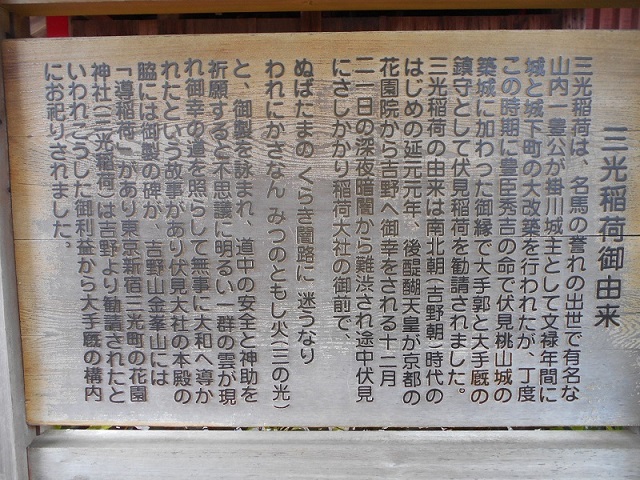 三光稲荷御由来
三光稲荷は、名馬の誉れの出世で有名な
山内一豊公が掛川城主として文禄年間に
城と城下町の大改築を行われたが、丁度
この時期に豊臣秀吉の命で伏見桃山城の
築城に加わった御縁で大手郭と大手厩の
鎮守として伏見稲荷を勧請されました。
三光稲荷の由来は南北朝(吉野朝)時代の
はじめの延元元年、後醍醐天皇が京都の
花園院から吉野へ御幸をされる十二月
二一日の深夜暗闇から難渋され途中伏見
にさしかかり稲荷大社の御前で、
ぬばたまの くらき闇路に 迷うなり
われにかさなん みつのともし火(三の光)
と、御製を詠まれ、道中の安全と神助を
祈願すると不思議に明るい一群の雲が現
れ御幸の道を照らして無事に大和へ導か
れたという故事があり伏見大社の本殿の
脇には御製の碑が、吉野山金峯山には
「導稲荷」があり東京新宿三光町の花園
神社(三光稲荷)は吉野より勧請されたと
いわれ、こうした御利益から大手厩の構内
にお祀りされました。